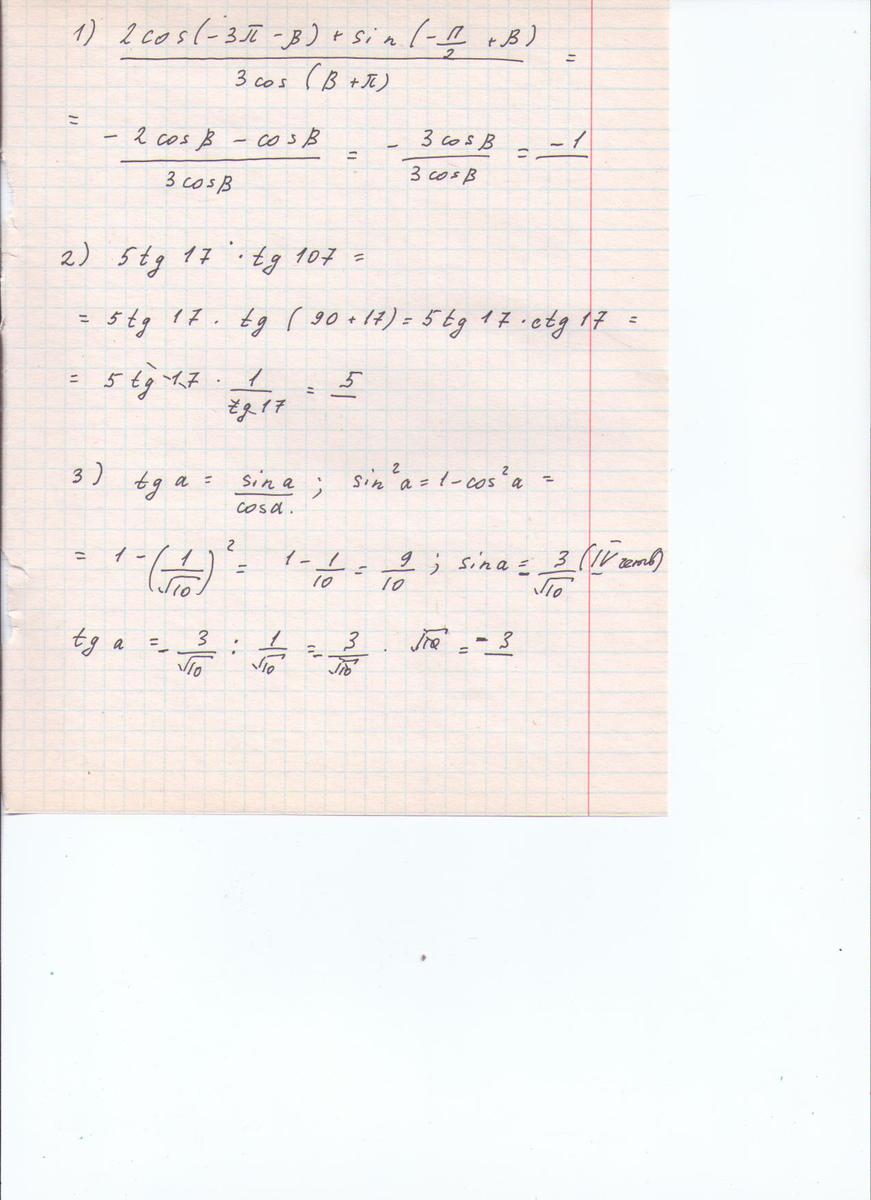 1) (2cos(-3π-β) + sin(-π/2 + β)) / (3cos(β+π)) =
= (-2cosβ - cosβ) / (3cosβ) = - 3cosβ / 3cosβ = -1
2) 5tg 17 · tg 107 =
= 5tg 17 · tg (90+17) = 5tg 17 · ctg 17 =
= 5 tg 17 · 1/tg 17 = 5
3) tg a = sin a / cos a. ; sin² a = 1 - cos² a =
= 1 - (1/√10)² = 1 - 1/10 = 9/10 ; sin a = - 3/√10 (IV четв)
tg a = - 3/√10 : 1/√10 = - 3/√10 · √10 = - 3